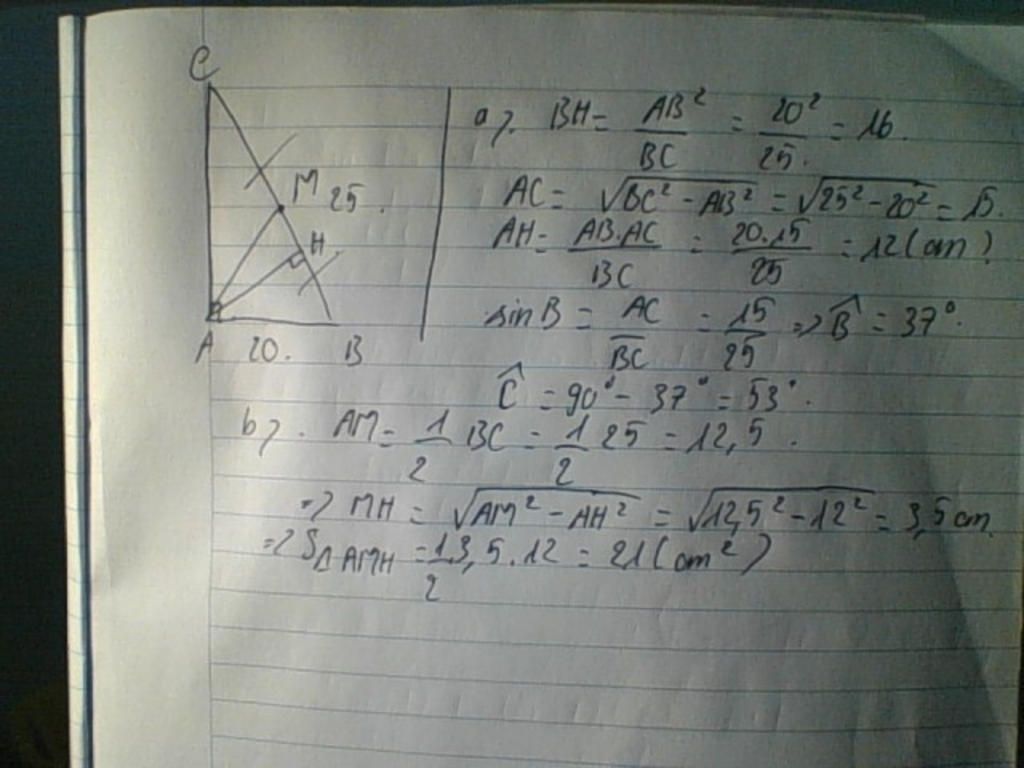 C
M 25.
H
A 20. B
a). BH = AB²/BC = 20²/25. = 16.
AC = √(BC² - AB²) = √(25² - 20²) = 15.
AH = AB.AC/BC = 20.15/25 = 12 (cm)
sin B = AC/BC = 15/25 => B̂ = 37°.
Ĉ = 90° - 37° = 53°.
b). AM = 1/2 BC = 1/2 25 = 12,5.
=> MH = √(AM² - AH²) = √(12,5² - 12²) = 3,5 cm
=> SΔAMH = 1/2 3,5.12 = 21 (cm²)